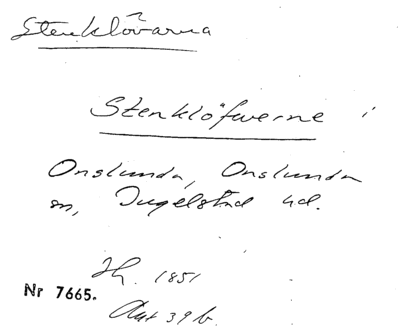 Stenklövarna
Stenklöfwerne i
Onslunda, Onslunda
sn, Ingelstad hd.
Jh. 1851
Nr 7665.
Akt 39 b.